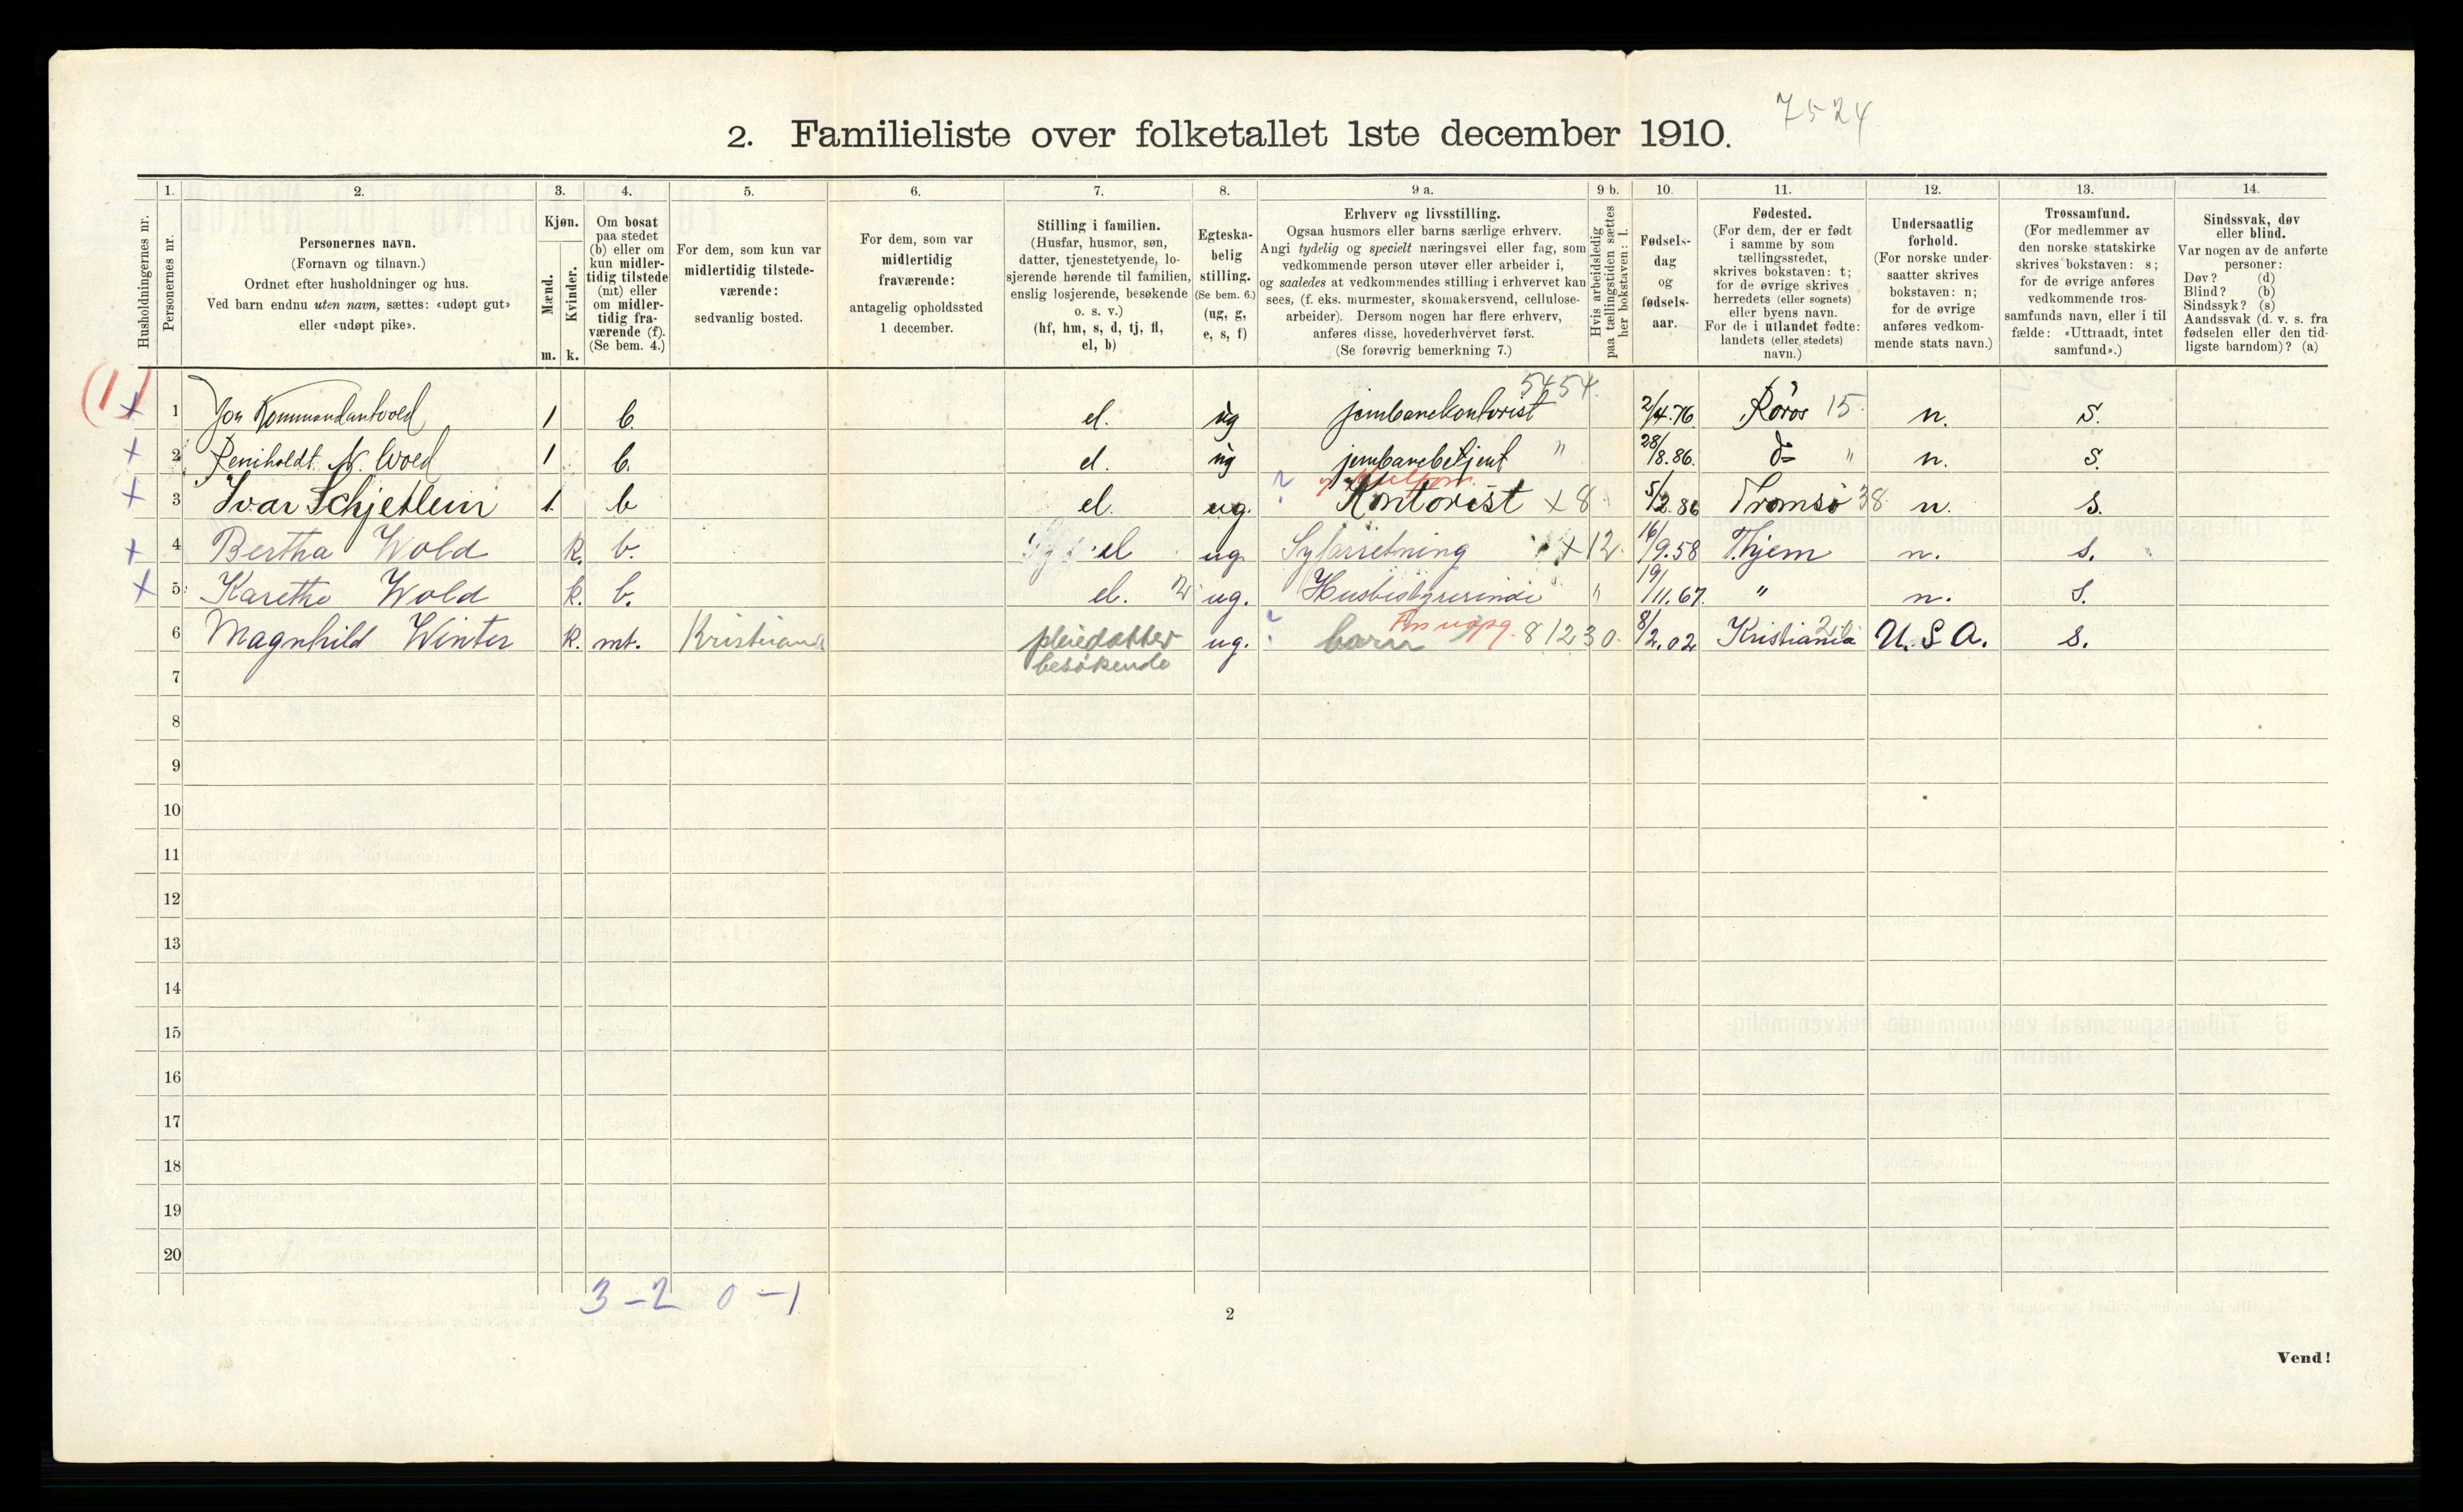 7524
2. Familieliste over folketallet 1ste december 1910.
Husholdningernes nr.
1. Personernes nr.
2. Personernes navn.
(Fornavn og tilnavn.)
Ordnet efter husholdninger og hus.
Ved barn endnu uten navn, sættes: «udøpt gut»
eller «udøpt pike».
3. Kjøn.
Mænd. Kvinder.
m. k.
4. Om bosat
paa stedet
(b) eller om
kun midler-
tidig tilstede
(mt) eller
om midler-
tidig fra-
værende (f).
(Se bem. 4.)
5. For dem, som kun var
midlertidig tilstede-
værende:
sedvanlig bosted.
6. For dem, som var
midlertidig
fraværende:
antagelig opholdssted
1 december.
7. Stilling i familien.
(Husfar, husmor, søn,
datter, tjenestetyende, lo-
sjerende hørende til familien,
enslig losjerende, besøkende
o. s. v.)
(hf, hm, s, d, tj, fl,
el, b)
8. Egteska-
belig
stilling.
(Se bem. 6.)
(ug, g,
e, s, f)
9 a. Erhverv og livsstilling.
Ogsaa husmors eller barns særlige erhverv.
Angi tydelig og specielt næringsvei eller fag, som
vedkommende person utøver eller arbeider i,
og saaledes at vedkommendes stilling i erhvervet kan
sees, (f. eks. murmester, skomakersvend, cellulose-
arbeider). Dersom nogen har flere erhverv,
anføres disse, hovederhvervet først.
(Se forøvrig bemerkning 7.)
9 b. Hvis arbeidsledig
paa tællingstiden sættes
her bokstaven: l.
10. Fødsels-
dag
og
fødsels-
aar.
11. Fødested.
(For dem, der er født
i samme by som
tællingsstedet,
skrives bokstaven: t;
for de øvrige skrives
herredets (eller sognets)
eller byens navn.
For de i utlandet fødte:
landets (eller stedets)
navn.)
12. Undersaatlig
forhold.
(For norske under-
saatter skrives
bokstaven: n;
for de øvrige
anføres vedkom-
mende stats navn.)
13. Trossamfund.
(For medlemmer av
den norske statskirke
skrives bokstaven: s;
for de øvrige anføres
vedkommende tros-
samfunds navn, eller i til
fælde: «Uttraadt, intet
samfund».)
14. Sindssvak, døv
eller blind.
Var nogen av de anførte
personer:
Døv? (d)
Blind? (b)
Sindssyk? (s)
Aandssvak (d. v. s. fra
fødselen eller den tid-
ligste barndom)? (a)
(1)
5454.
x 1 Jon Kommandantvold 1 b. el. ug jernbanekontorist 2/4.76. Røros 15 n. s.
x 2 Reniholdt N. Wold 1 b. el. ug jernbanebetjent " 28/8.86. do " n. s.
x 3 Ivar Schjetlein 1 b el. ug. ? Kontorist x 8 5/2.86 Tromsø 38 n. s.
x 4 Bertha Wold k. b. el ug Syforretning x 12. 16/9.58 Thjem n. s.
x 5 Karethe Wold k. b. el. ug. Husbestyrerinde " 19/11.67. " n. s.
6 Magnhild Winter k. mt. Kristiania pleiedatter ug. ? barn 81230 8/2.02 Kristiania U.S.A. s.
besøkende
7
8
9
10
11
12
13
14
15
16
17
18
19
20
3-2 0-1
2
Vend!